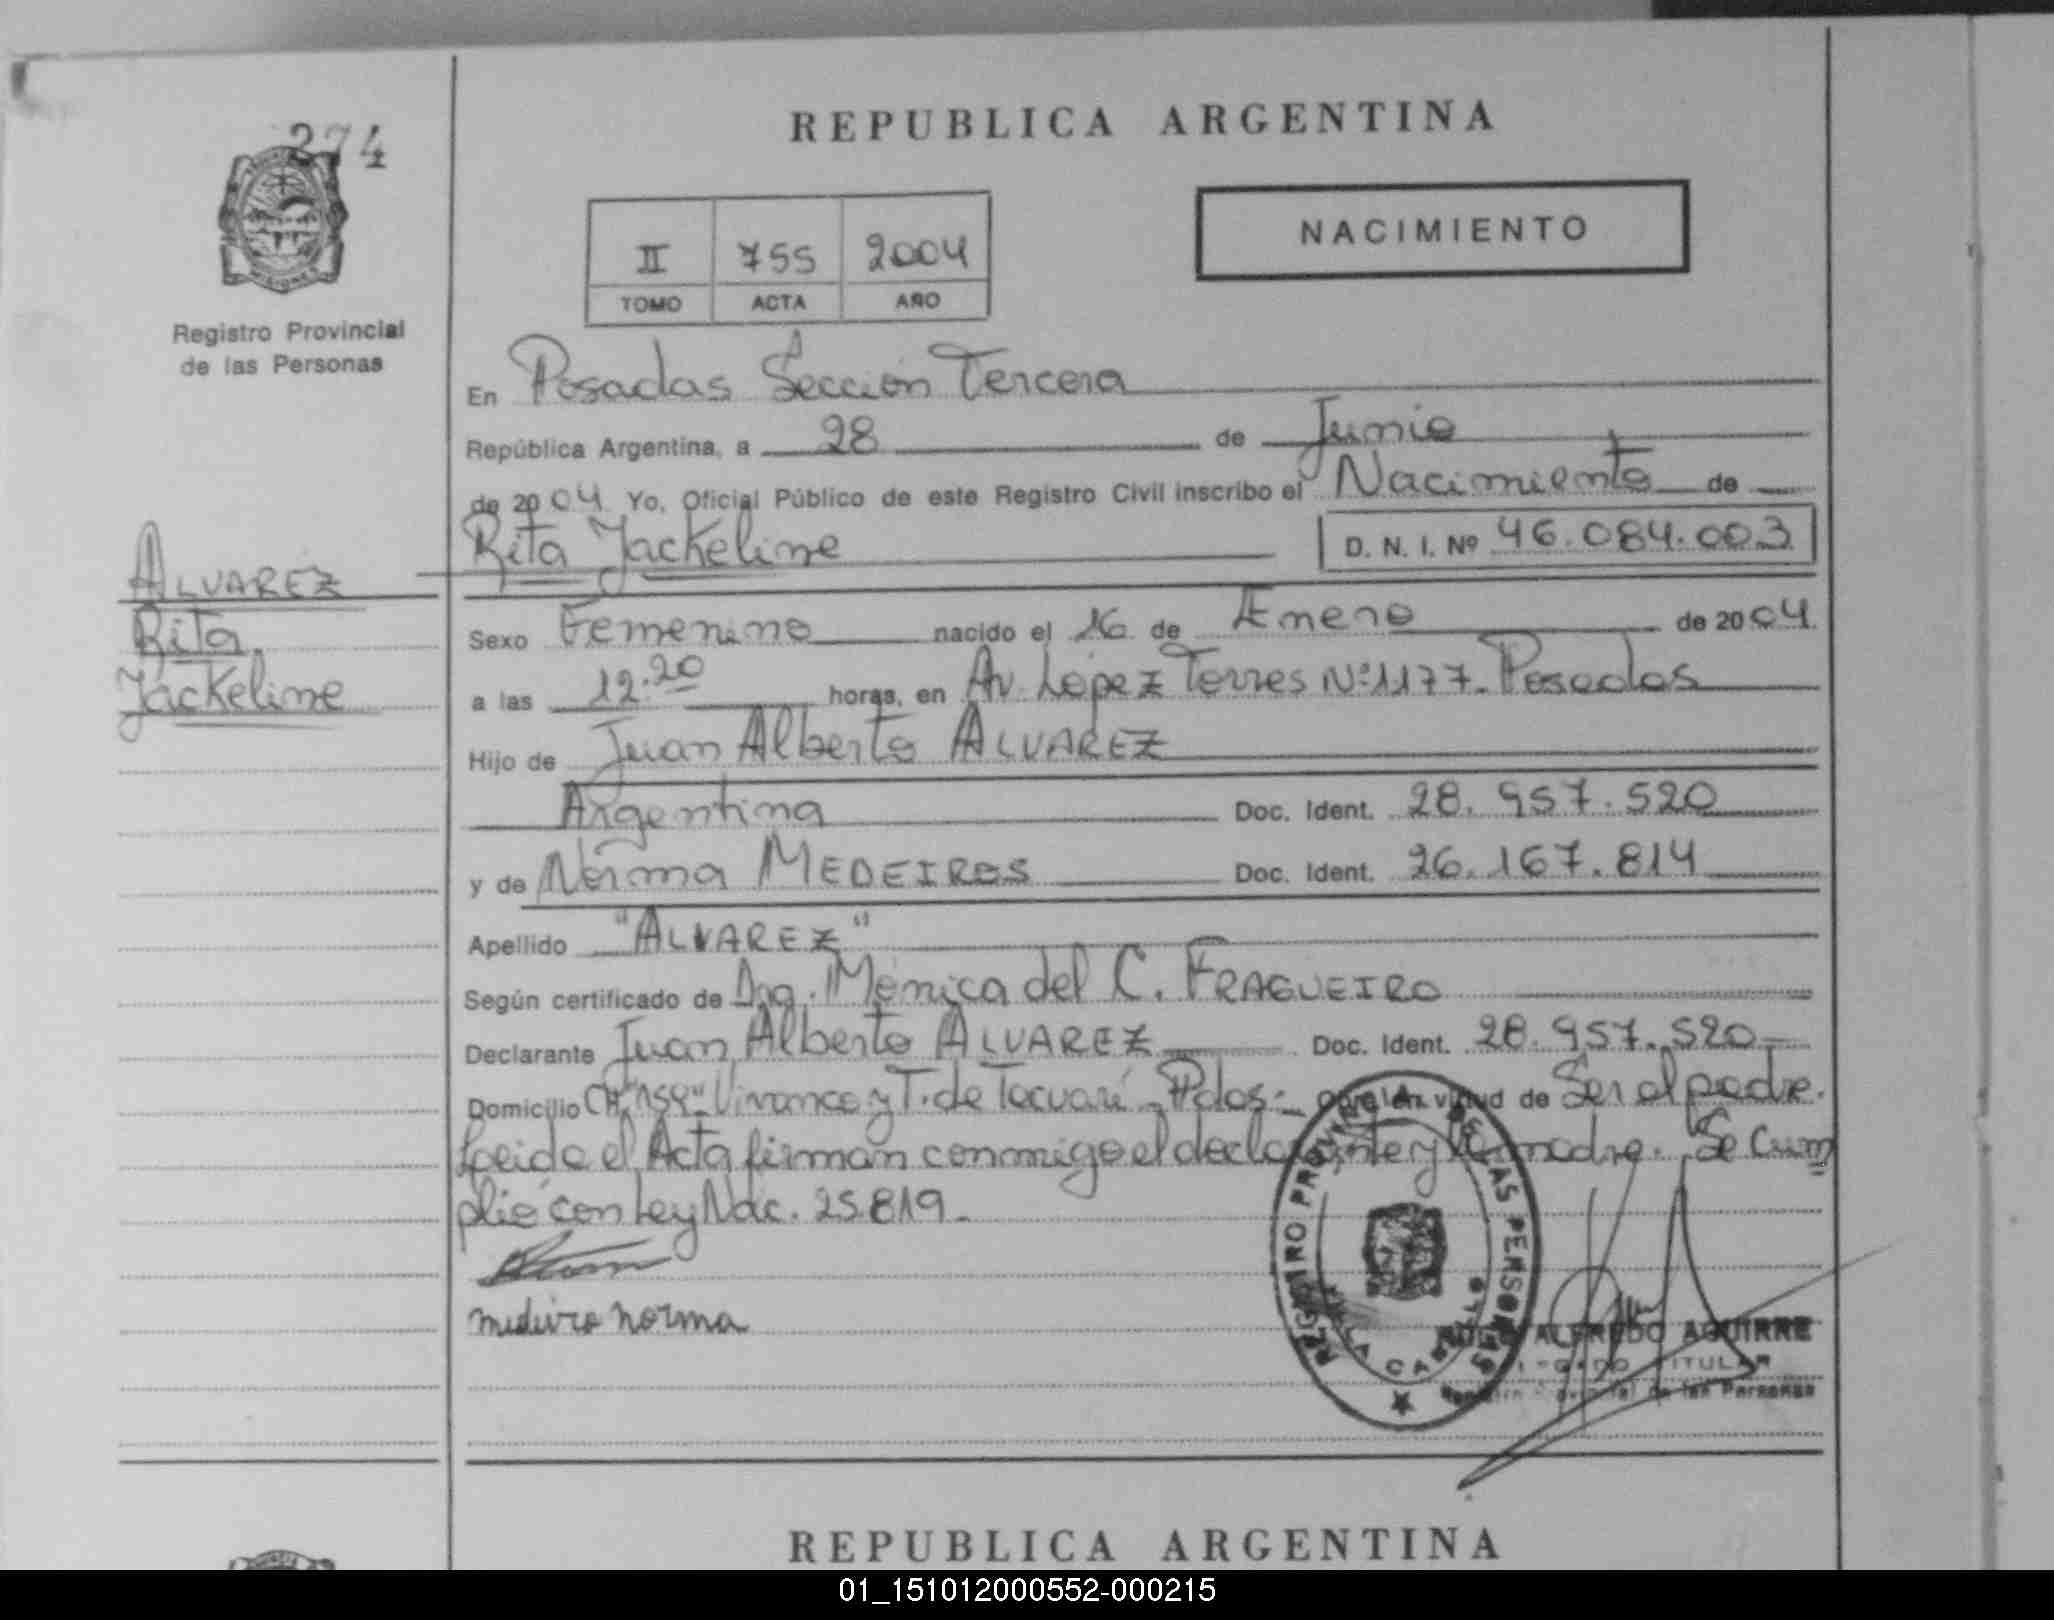 274
REPUBLICA ARGENTINA
NACIMIENTO
II 755 2004
TOMO ACTA AÑO
MISIONES
Registro Provincial
de las Personas
En Posadas Sección Tercera
República Argentina, a 28 de Junio
de 2004 Yo, Oficial Público de este Registro Civil inscribo el Nacimiento de
Rita Jackeline D. N. I. Nº 46.084.003
ALVAREZ
Rita
Jackeline
Sexo Femenino nacido el 16 de Enero de 2004
a las 12:20 horas, en Av. López Torres Nº 1177. Posadas
Hijo de Juan Alberto ALVAREZ
Argentina Doc. Ident. 28.957.520
y de Norma MEDEIROS Doc. Ident. 26.167.814
Apellido "ALVAREZ"
Según certificado de Mónica del C. FRAGUEIRO
Declarante Juan Alberto ALVAREZ Doc. Ident. 28.957.520
Domicilio CH. 159 Vivanco y T. de Tacuarí Pdas. virtud de Ser el padre.
Leida el Acta firman conmigo el declarante y la madre. Se cum
plió con Ley Nac. 25.819.
medeiro norma
REGISTRO PROVINCIAL DE LAS PERSONAS
VILLA CABELLO
ALFREDO AGUIRRE
TITULAR
de las Personas
REPUBLICA ARGENTINA
01_151012000552-000215